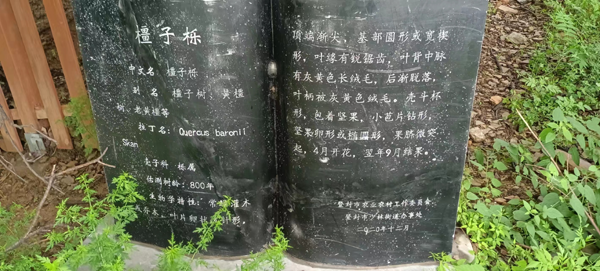 橿子栎
中文名 橿子栎
别名 橿子树、黄橿
树、老黄檀等
拉丁名: Quercus baronii
Skan
壳子科 栎属
估测树龄: 800年
生物学特性:
乔木。叶片卵状
形。
顶端渐尖，基部圆形或宽楔
形，叶缘有锐锯齿，叶背中脉
有灰黄色长绒毛，后渐脱落，
叶柄被灰黄色绒毛。壳斗杯
形，包着坚果，小苞片钻形，
坚果卵形或椭圆形，果脐微突
起，4月开花，翌年9月结果。
登封市农业农村工作委员会
登封市少林街道办事处
二〇二〇年十二月